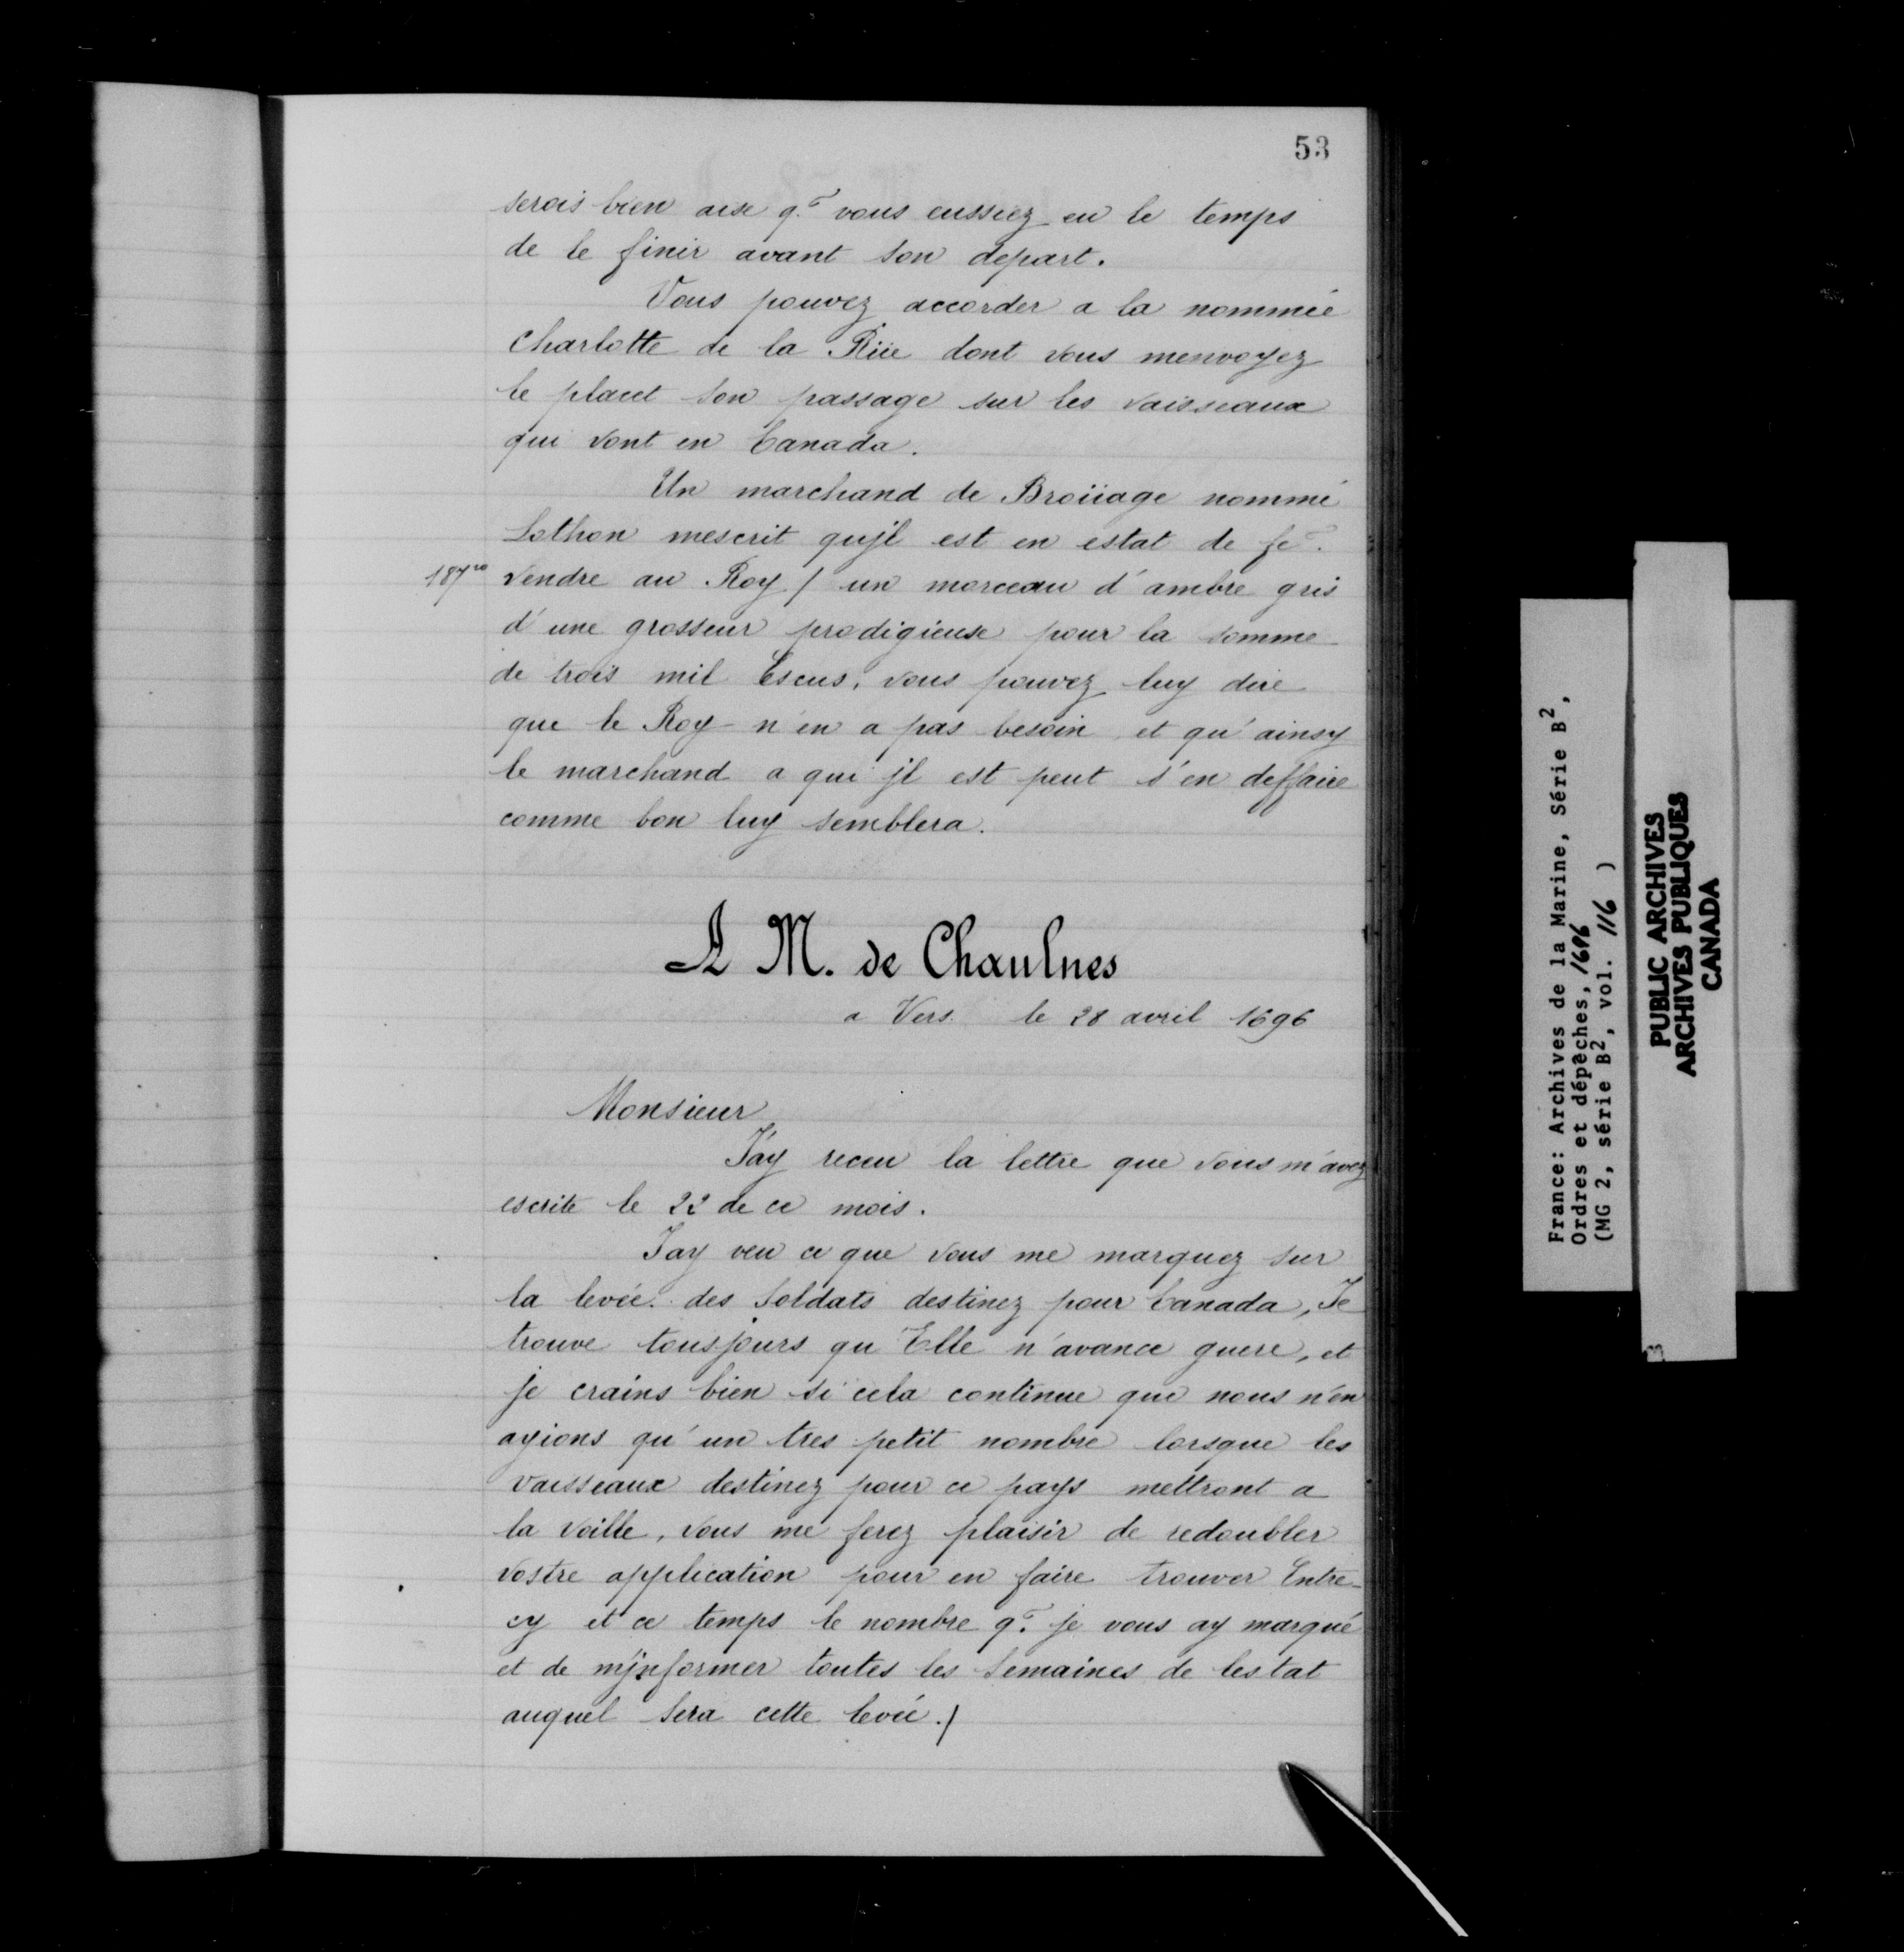 53
serois bien aise q.^e vous eussiez eu le temps
de le finir avant son depart.
Vous pouvez accorder a la nommée
Charlotte de la Rüe dont vous menvoyez
le placet son passage sur les vaisseaux
qui vont en Canada.
Un marchand de Broüage nommé
Lothon mescrit qujl est en estat de fe.
187^vo vendre au Roy / un morceau d'ambre gris
d'une grosseur prodigieuse pour la somme
de trois mil Escus, vous pouvez luy dire
que le Roy n'en a pas besoin et qu'ainsy
le marchand a qui jl est peut s'en deffaire
comme bon luy semblera.
A M. de Chaulnes
a Vers. le 28 avril 1696
Monsieur
J'ay receu la lettre que vous m'avez
escrite le 22 de ce mois.
Jay veu ce que vous me marquez sur
la levée des soldats destinez pour Canada, Je
trouve tousjours qu'Elle n'avance guere, et
je crains bien si cela continue que nous n'en
ayions qu'un tres petit nombre lorsque les
vaisseaux destinez pour ce pays mettront a
la voille, vous me ferez plaisir de redoubler
vostre application pour en faire trouver Entre-
cy et ce temps le nombre q.^e je vous ay marqué
et de mjnformer toutes les semaines de lestat
auquel sera cette levée./
France: Archives de la Marine, Série B²,
Ordres et dépêches, 1696
(MG 2, série B², vol. 116 )
PUBLIC ARCHIVES
ARCHIVES PUBLIQUES
CANADA